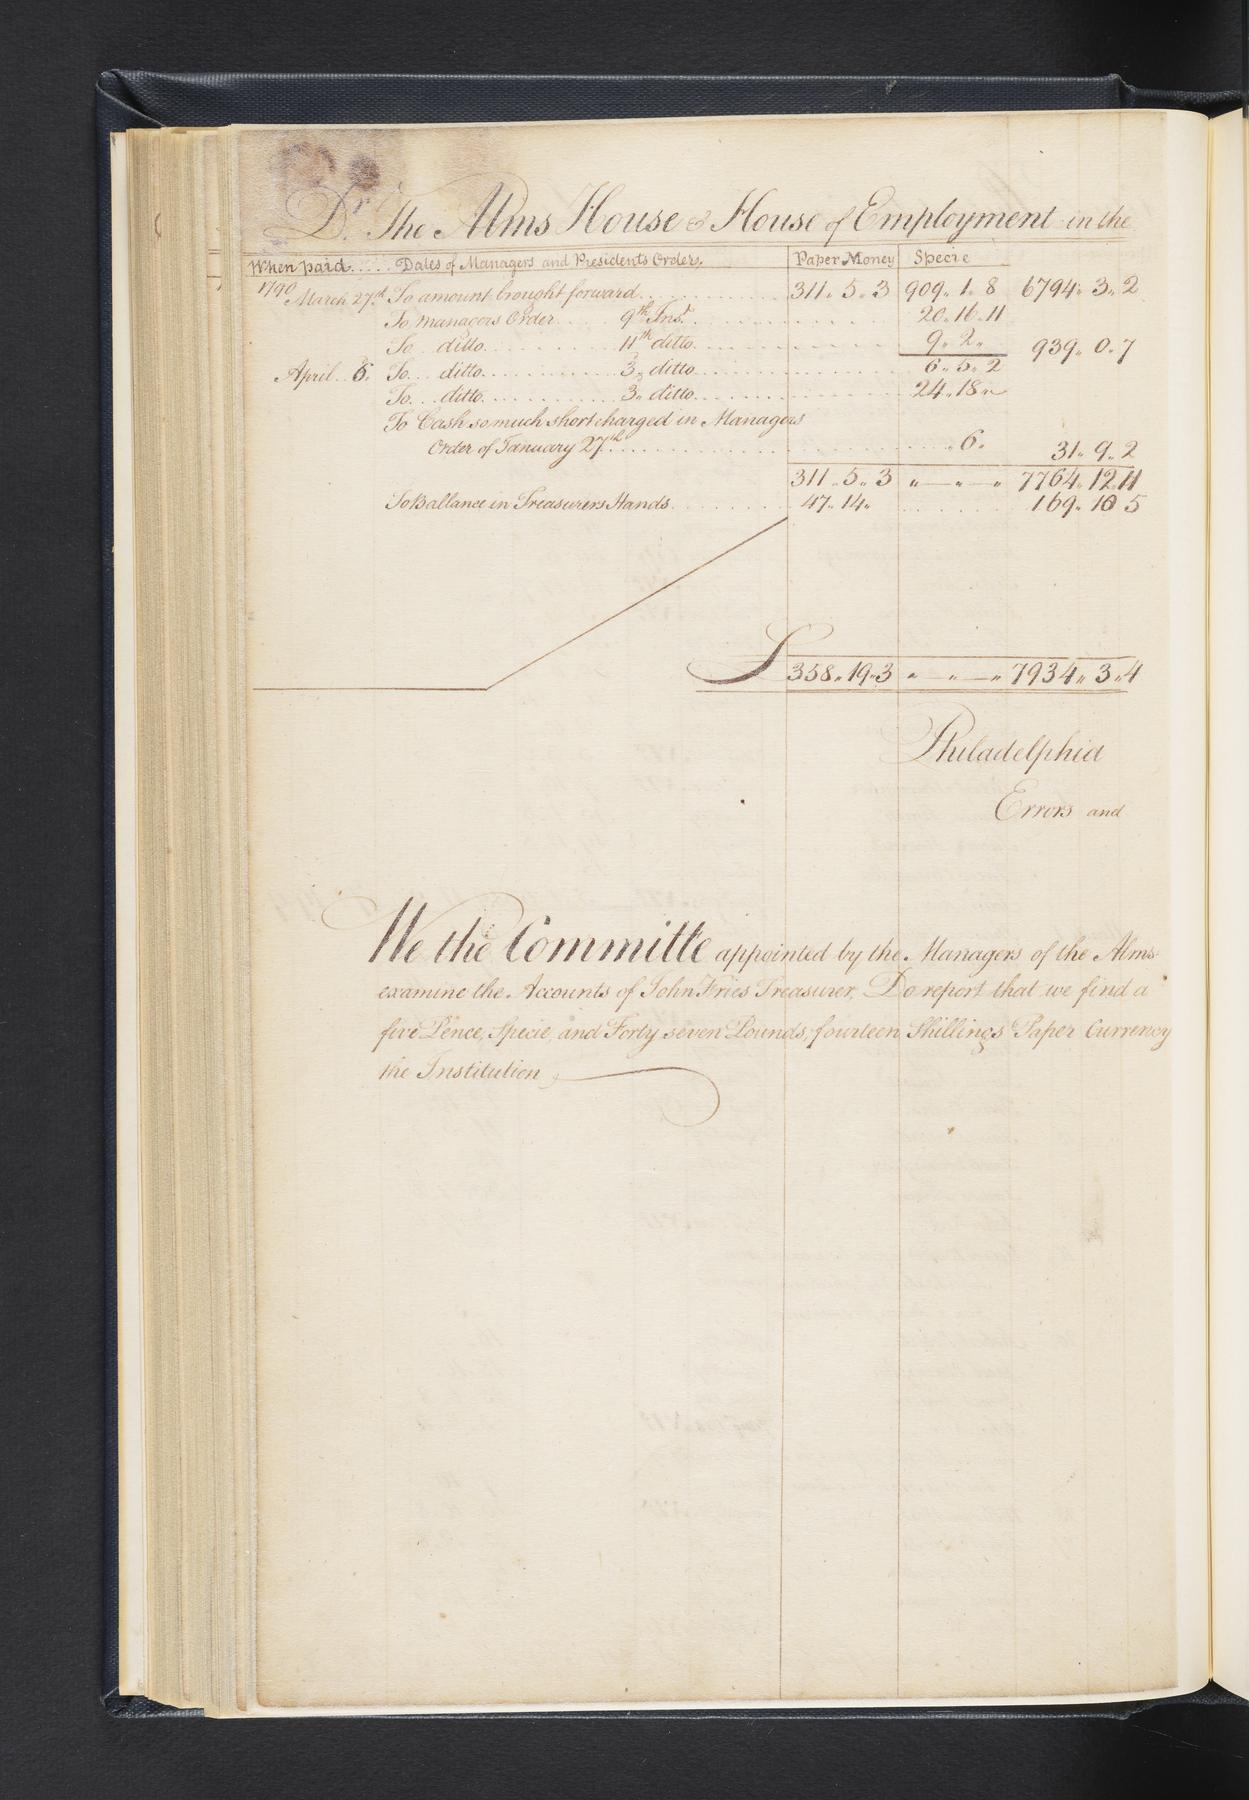 Dr. The Alms House & House of Employment in the
When paid..... Dates of Managers and Presidents Orders. Paper Money Specie
1790 March 27th To amount brought forward 311.. 5.. 3 909.. 1.. 8 6794.. 3.. 2
To Managers Order 9th Inst. 20..16..11
To ditto 11th ditto 9.. 2.. 939.. 0.. 7
April 6. To ditto 3. ditto 6.. 5.. 2
To ditto 3. ditto 24..18..
To Cash so much short charged in Managers
Order of January 27th .. 6.. 31.. 9.. 2
311.. 5.. 3 " — " — " 7764..12..11
To Ballance in Treasurers Hands 47..14.. 169..10 5
£ 358..19..3 " — " — " 7934.. 3..4
Philadelphia
Errors and
We the Committe appointed by the Managers of the Alms
examine the Accounts of John Fries Treasurer, Do report that we find a
five Pence, Specie, and Forty seven Pounds, fourteen Shillings Paper Currency
the Institution